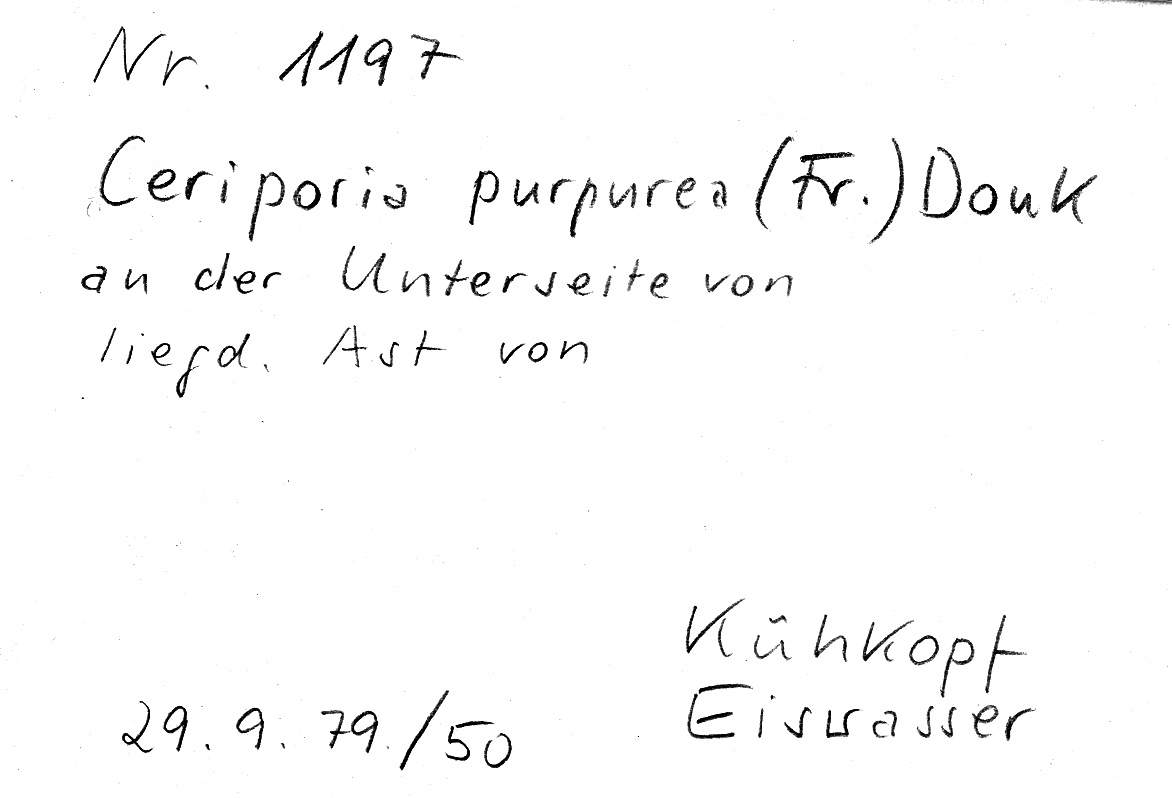 Nr. 1197
Ceriporia purpurea (Fr.) Donk
an der Unterseite von
liegd. Ast von
Kühkopf
29.9.79/50 Eiswasser